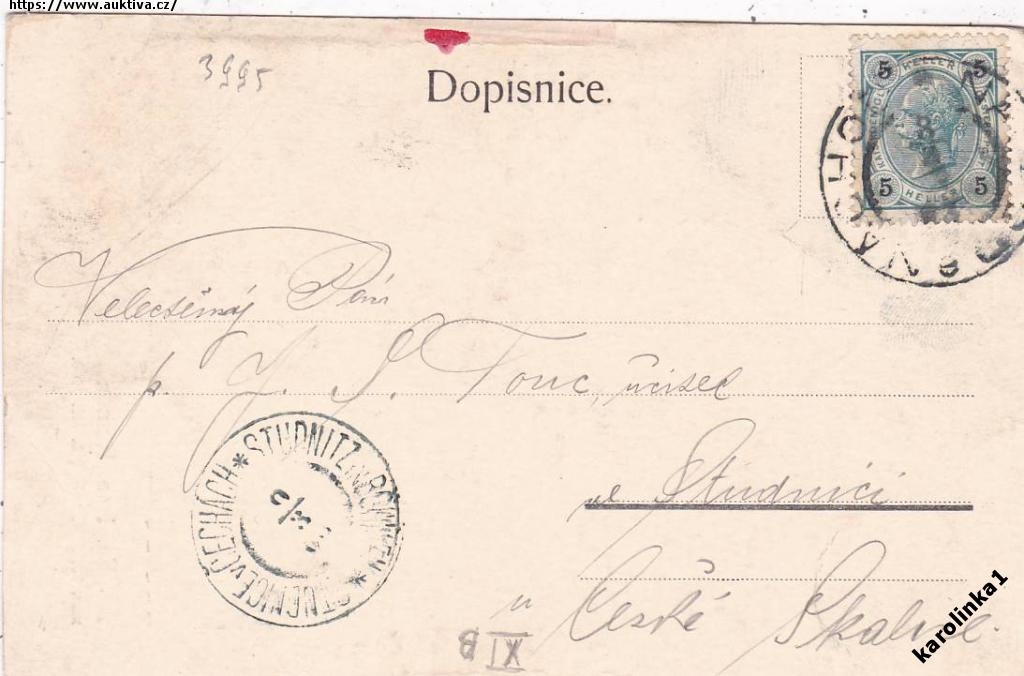 https://www.auktiva.cz/
3995
Dopisnice.
5 HELLER 5
5 HELLER 5
Velectěný Pán
p. J. S. Tonc, učitel
ve Studnici
u České Skalice.
STUDNITZ in BÖHMEN * STUDNICE v ČECHÁCH *
XI B
karolinka1